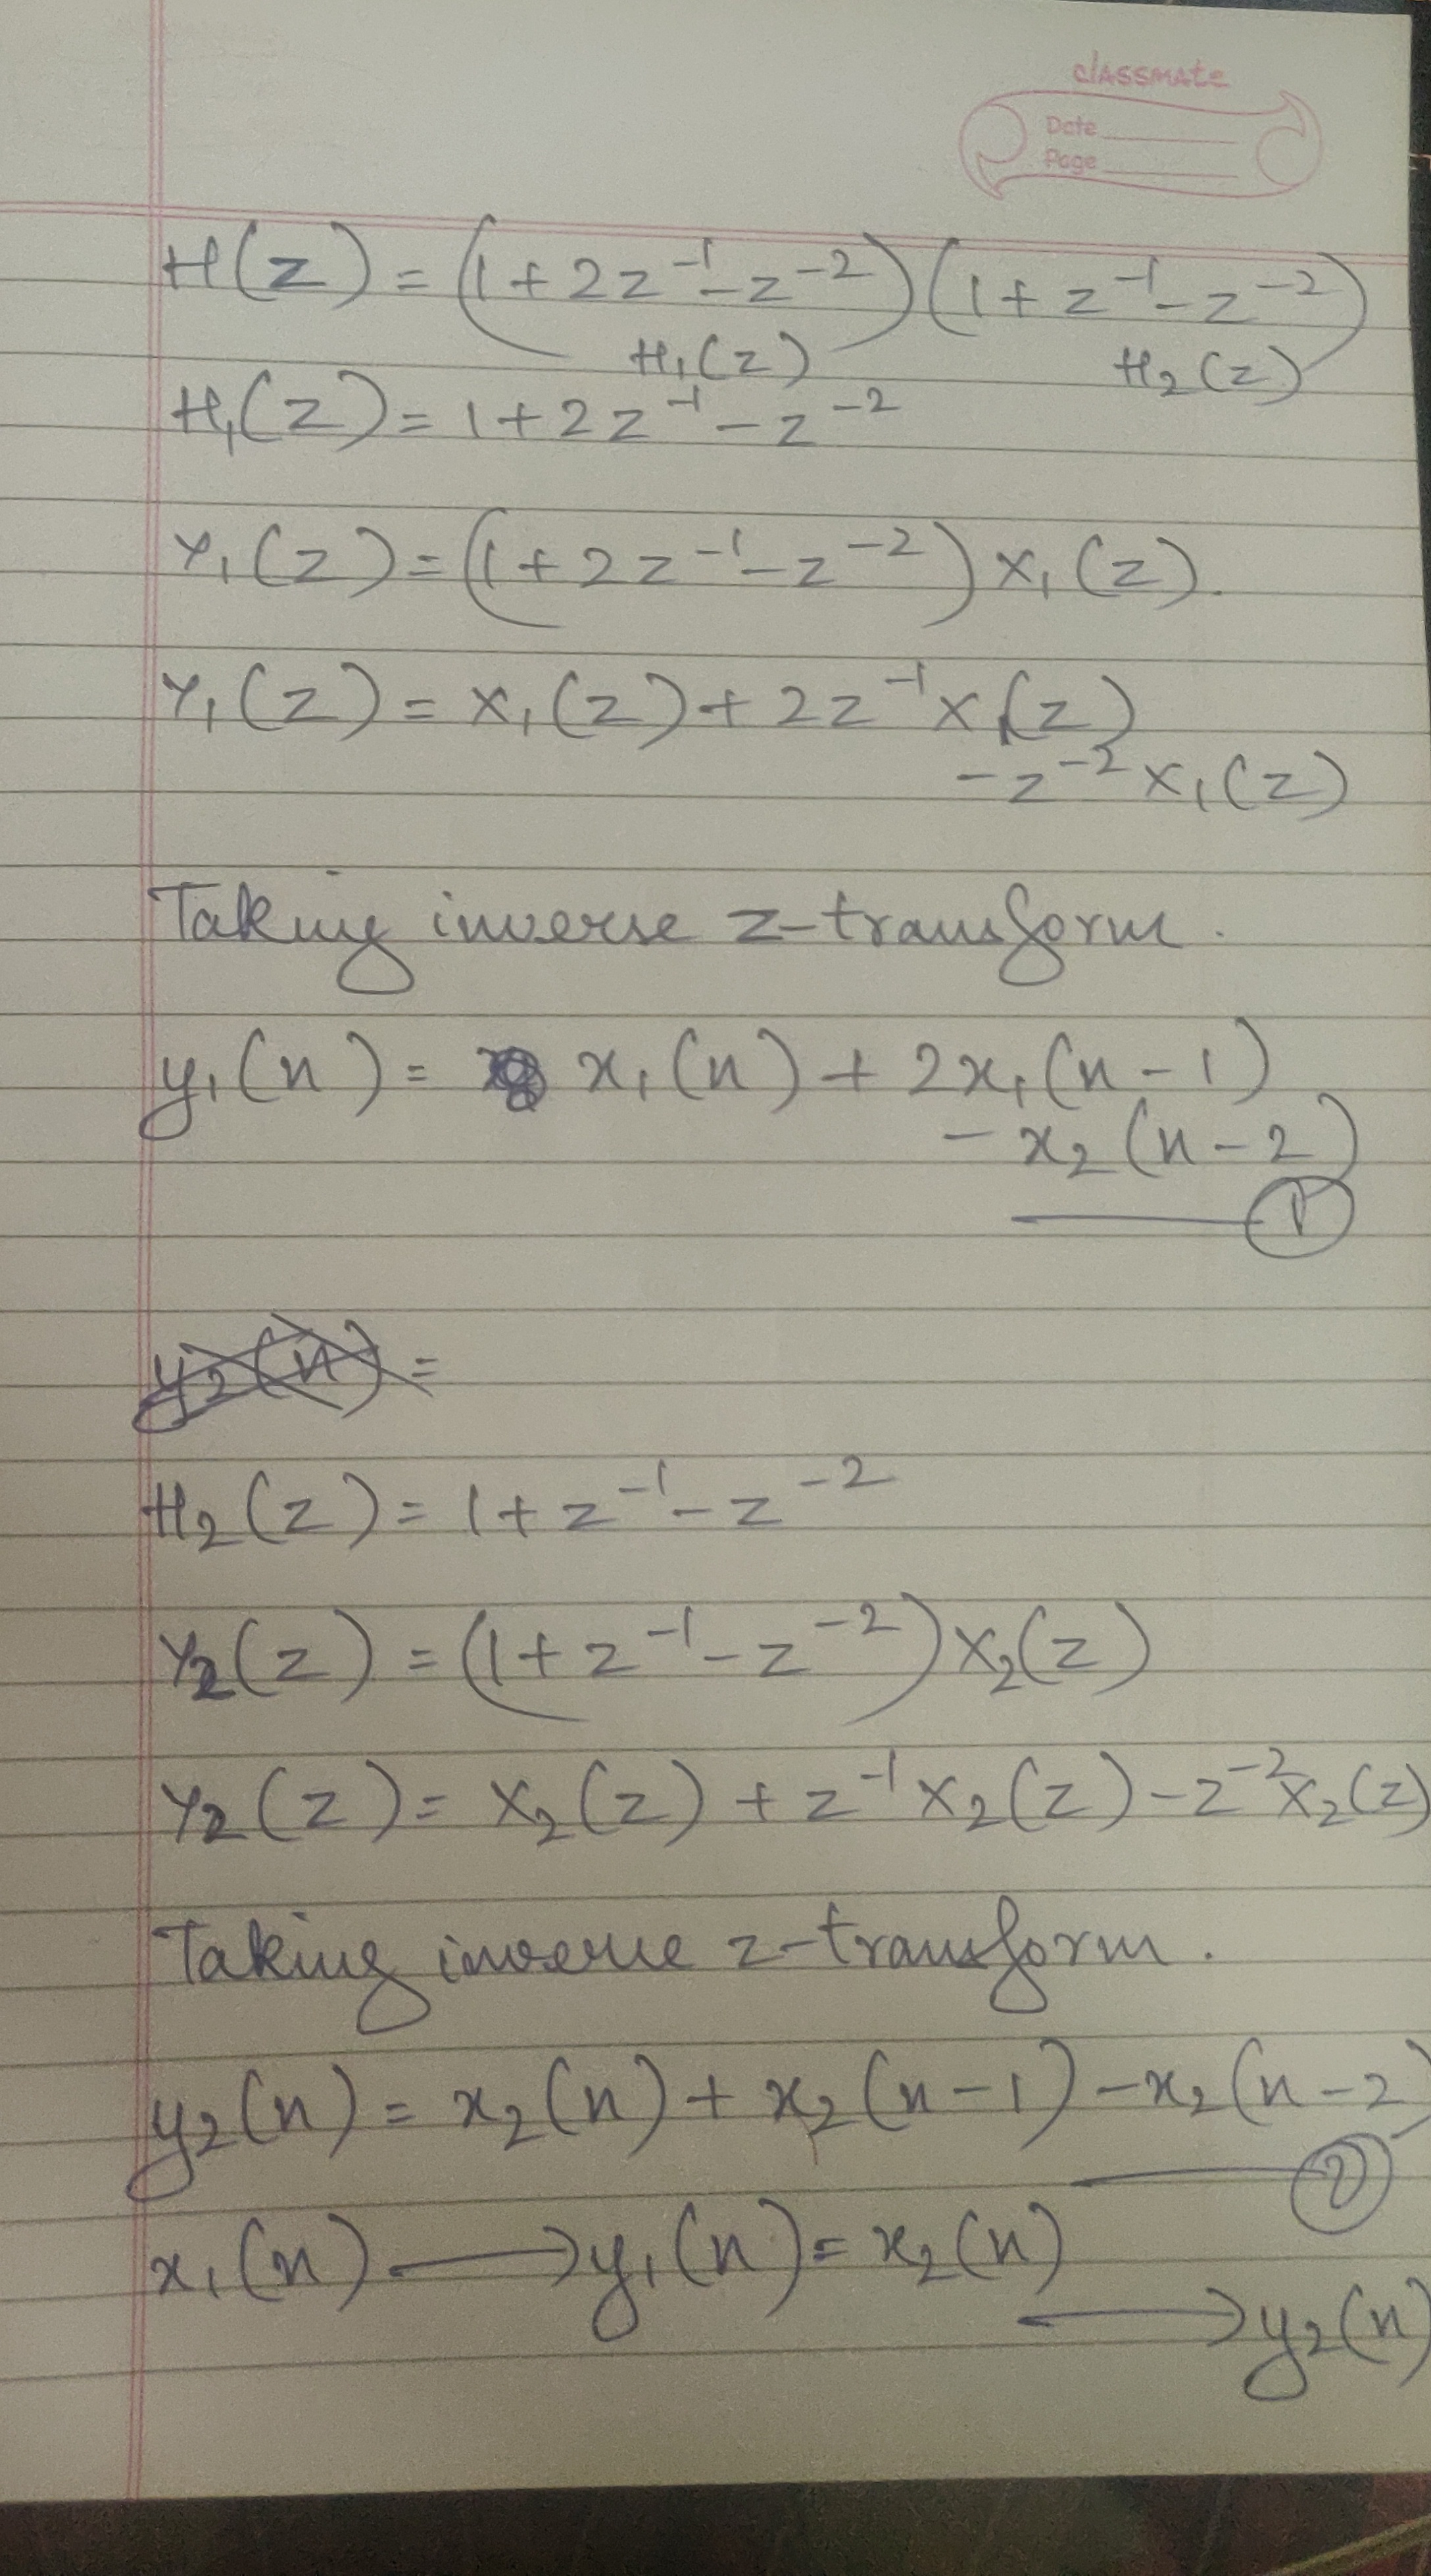 classmate
Date
Page
H(z) = (1 + 2z⁻¹ - z⁻²)(1 + z⁻¹ - z⁻²)
H₁(z) H₂(z)
H₁(z) = 1 + 2z⁻¹ - z⁻²
Y₁(z) = (1 + 2z⁻¹ - z⁻²) X₁(z).
Y₁(z) = X₁(z) + 2z⁻¹X₁(z)
- z⁻²X₁(z)
Taking inverse z-transform.
y₁(n) = x₁(n) + 2x₁(n-1)
- x₂(n-2)
①
y₂(n) =
H₂(z) = 1 + z⁻¹ - z⁻²
Y₂(z) = (1 + z⁻¹ - z⁻²) X₂(z)
Y₂(z) = X₂(z) + z⁻¹X₂(z) - z⁻²X₂(z)
Taking inverse z-transform.
y₂(n) = x₂(n) + x₂(n-1) - x₂(n-2)
②
x₁(n) ⟶ y₁(n) = x₂(n)
⟶ y₂(n)